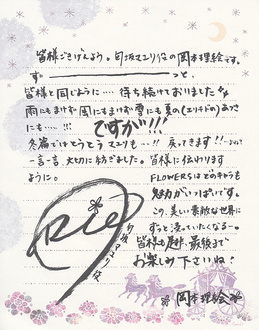 皆様ごきげんよう。匂坂マユリ役の岡本理絵です。
ず――――――――っと、
皆様と同じように…待ち続けておりました
雨にもまけず風にもまけず雪にも夏の(エリカドの)あつさ
にも…!!! ですが!!!
冬篇ではとうとうマユリも…!! 戻ってきます!!
一言一言、大切に紡ぎました。皆様に伝わります
ように。
FLOWERSはどのキャラも
魅力がいっぱいです。
この、美しい素敵な世界に
ずっと浸っていたくなる…
皆様も是非最後まで
お楽しみ下さいね!
Rie
匂坂マユリ役
岡本理絵